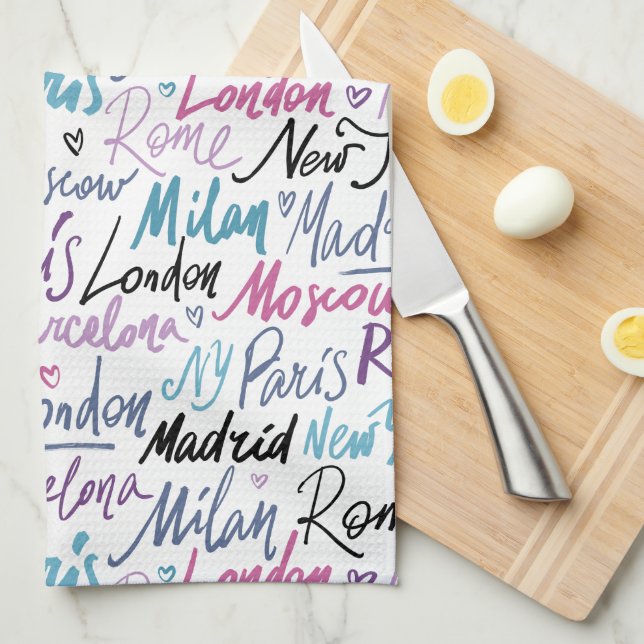 ris London
Rome New
oscow Milan Mad
is London Moscow
arcelona R
NY Paris
ondon Madrid New
elona Milan Rom
ris Rome London